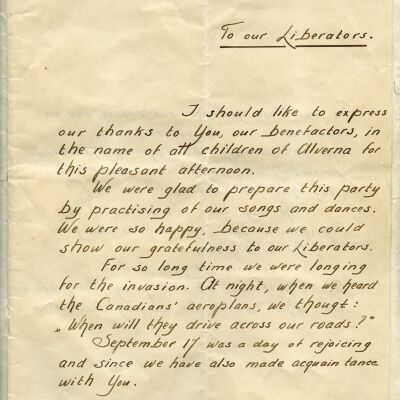 To our Liberators.
I should like to express
our thanks to You, our benefactors, in
the name of all children of Alverna for
this pleasant afternoon.
We were glad to prepare this party
by practising of our songs and dances.
We were so happy, because we could
show our gratefulness to our Liberators.
For so long time we were longing
for the invasion. At night, when we heard
the Canadians' aeroplans, we thougt:
„When will they drive across our roads?"
September 17 was a day of rejoicing
and since we have also made acquain tance
with You.